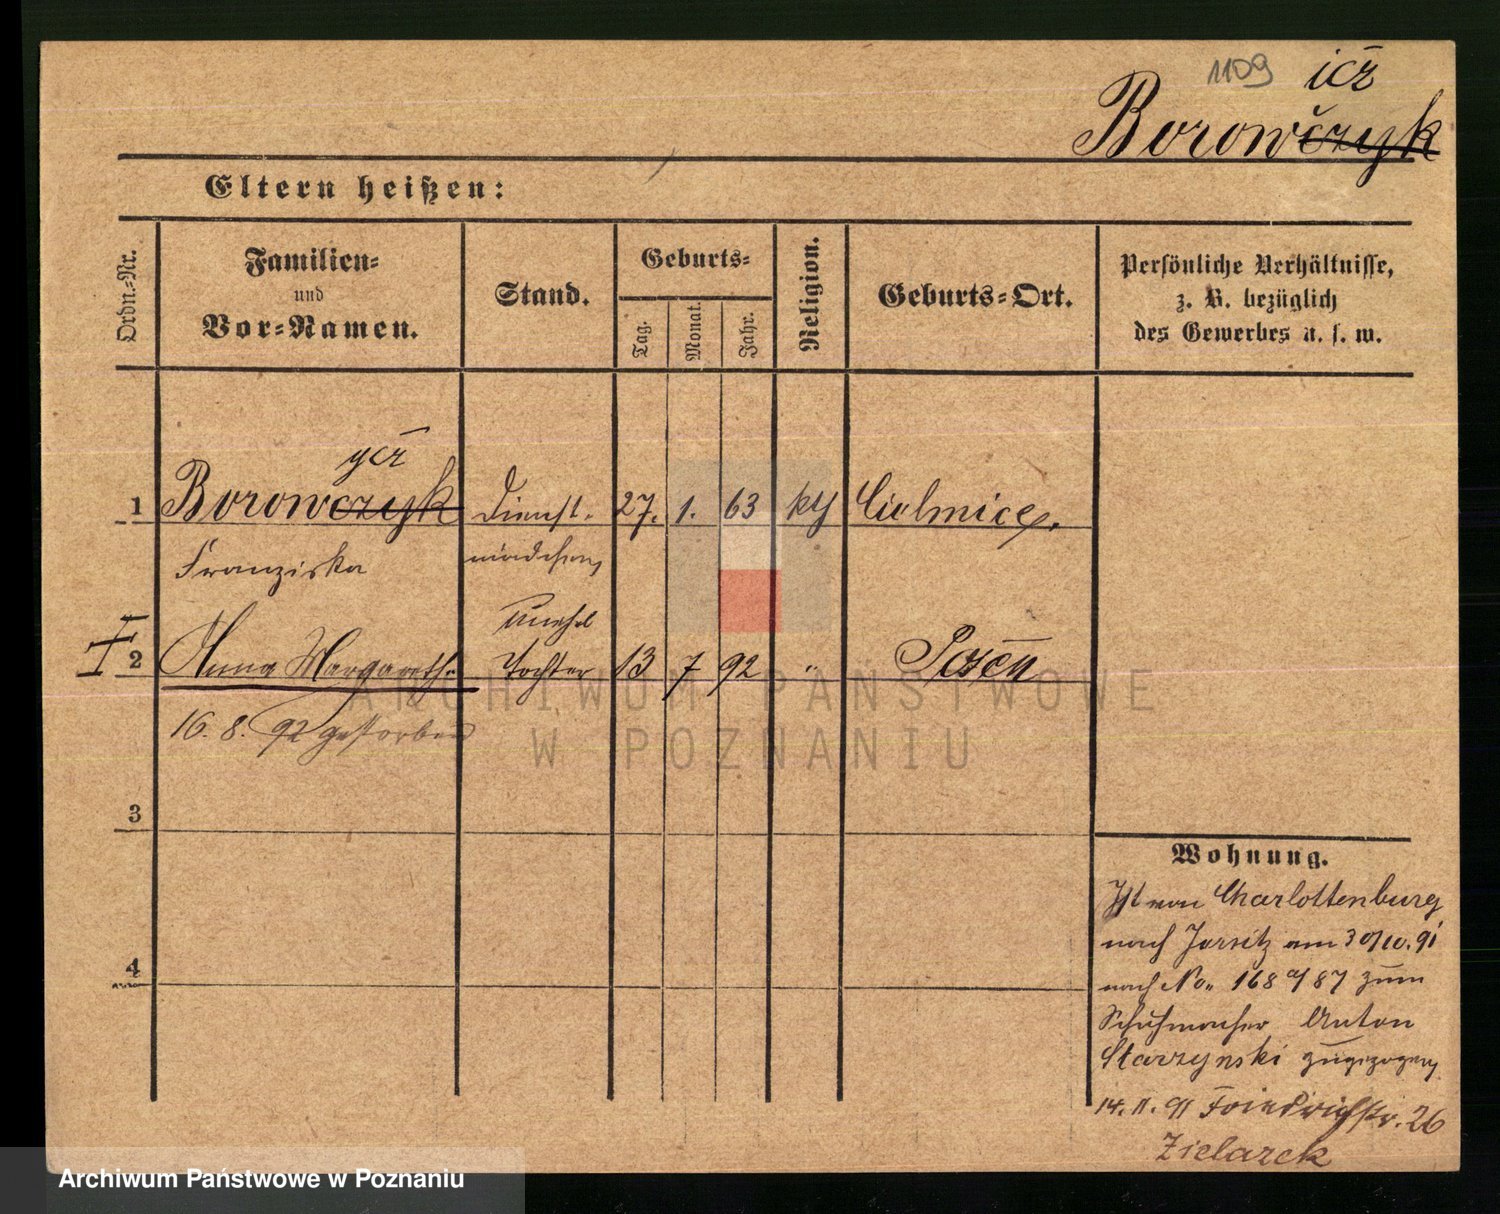 1109
icz
Borowczyk
Eltern heißen:
Ordn.-Nr.
Familien-
und
Vor-Namen.
Stand.
Geburts-
Tag.
Monat.
Jahr.
Religion.
Geburts-Ort.
Persönliche Verhältnisse,
z. B. bezüglich
des Gewerbes u. s. w.
ycz
1 Borowczyk Dienst- 27. 1. 63
Franziska mädchen
unehel
2 Anna Margareth. Tochter 13 7 92 " Posen
16. 8. 92 gestorben
ARCHIWUM PAŃSTWOWE
W POZNANIU
3
4
Wohnung.
Ist von Charlottenburg
nach Jersitz am 30/10. 91
nach No. 168 a/87 zum
Schuhmacher Anton
Starzynski zugezogen
14. 11. 91 Friedrichstr. 26
Zielazek
Archiwum Państwowe w Poznaniu